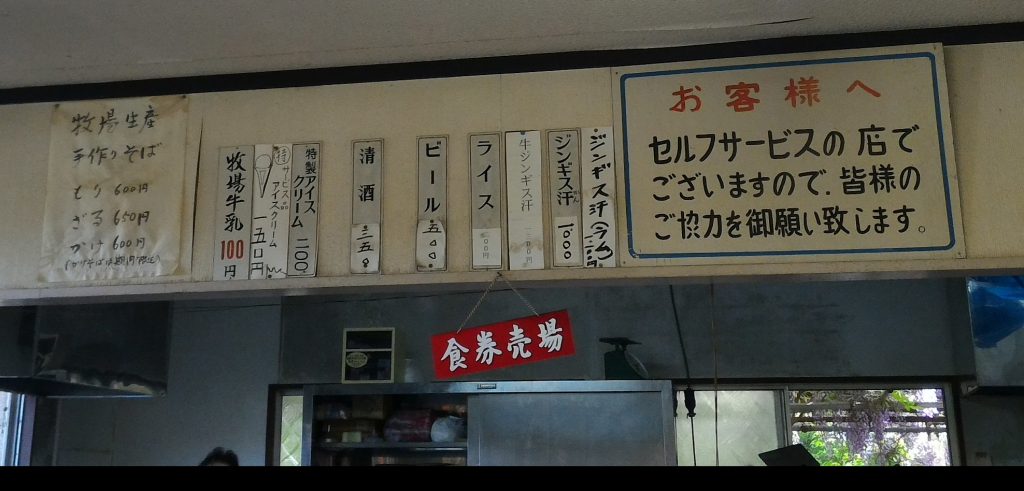 牧場生産
手作りそば
もり 600円
ざる 650円
かけ 600円
牧場牛乳 100円
サービス品
アイスクリーム 一五〇円
特製アイスクリーム 二〇〇
清酒 三五〇
ビール 五〇〇
ライス
牛ジンギス汗
ジンギス汗 1,000
ジンギス汗
お客様へ
セルフサービスの店で
ございますので、皆様の
ご協力を御願い致します。
食券売場